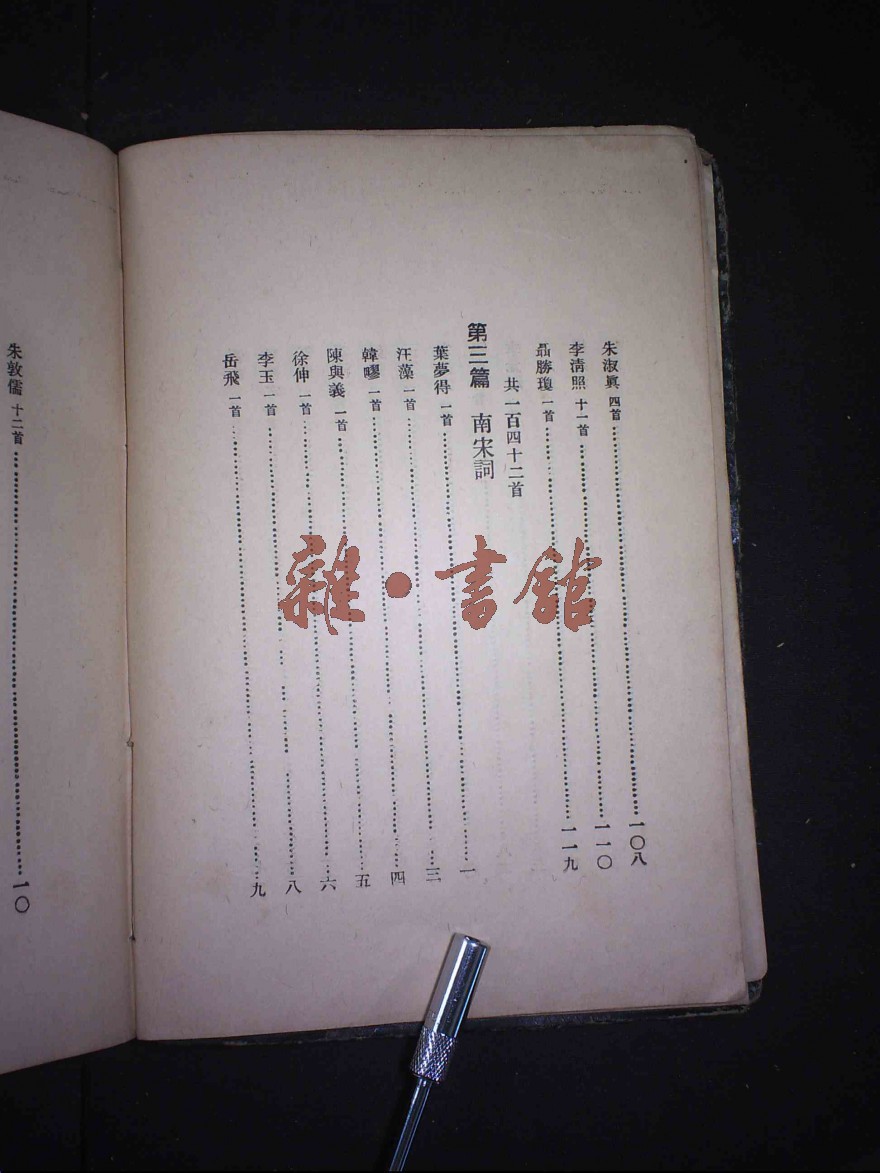 朱淑眞 四首 一〇八
李清照 十一首 一一〇
聶勝瓊 一首 一一九
第三篇 南宋詞 共一百四十二首
葉夢得 一首 一
汪藻 一首 三
韓疁 一首 四
陳與義 一首 五
徐伸 一首 六
李玉 一首 八
岳飛 一首 九
朱敦儒 十二首 一〇
雜·書館